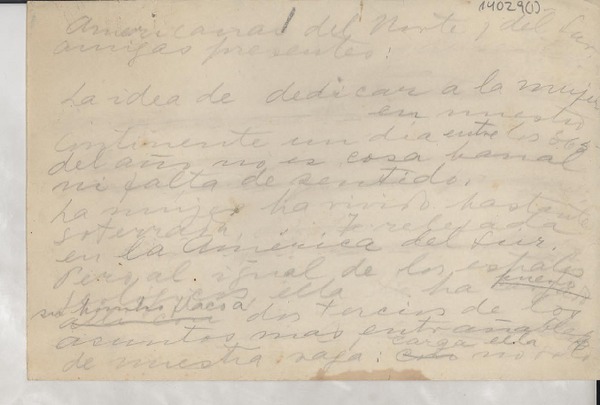 14029(1)
Americanas del Norte y del Sur,
amigas presentes:
La idea de dedicar a la mujer
en nuestro
Continente un día entre los 365
del año no es cosa banal
ni falta de sentido.
La mujer ha vivido bastante
soterrada y relegada
en la América del Sur.
Pero, al igual de los
ella ha
su hombro flaco a
dos tercios de los
asuntos más entrañables
carga ella
de nuestra raza: no solo